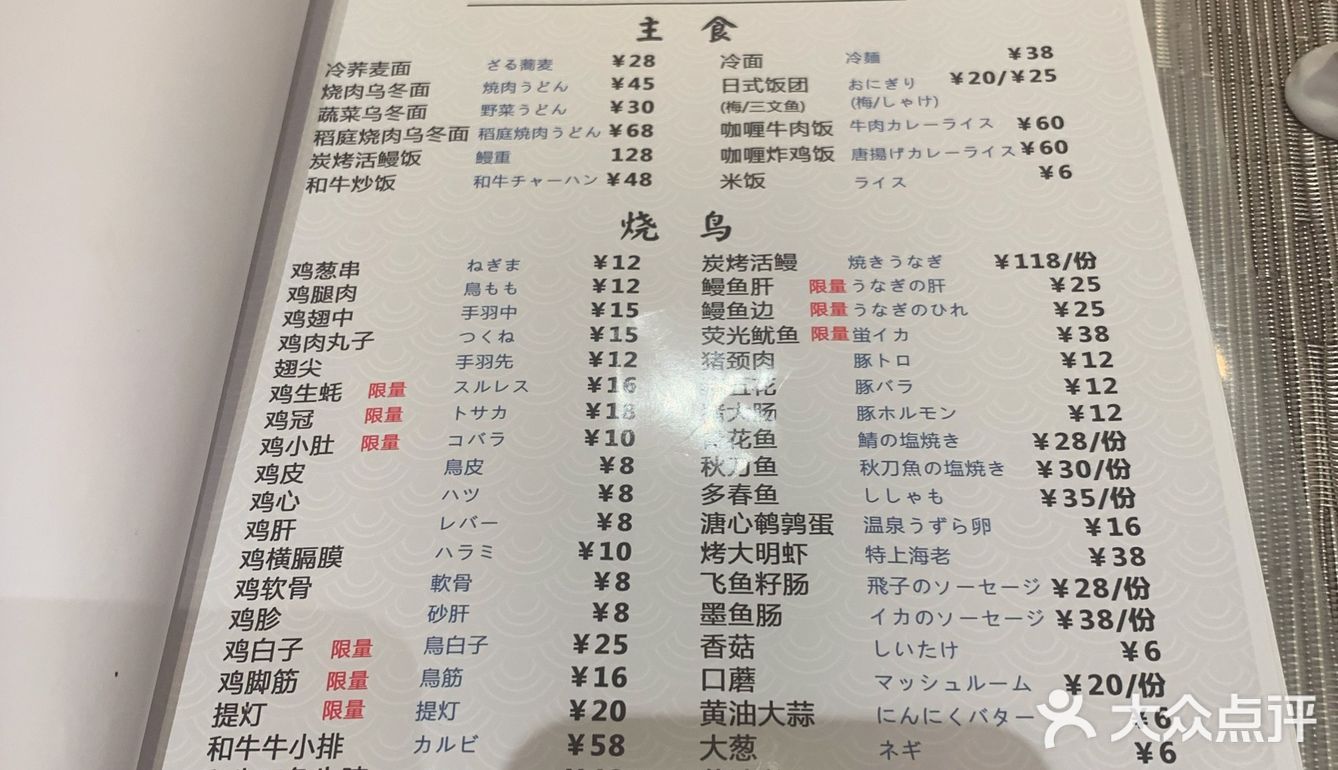 主 食
冷荞麦面 ざる蕎麦 ¥28 冷面 冷麺 ¥38
烧肉乌冬面 焼肉うどん ¥45 日式饭团 おにぎり ¥20/¥25
蔬菜乌冬面 野菜うどん ¥30 (梅/三文鱼) (梅/しゃけ)
稻庭烧肉乌冬面 稻庭焼肉うどん ¥68 咖喱牛肉饭 牛肉カレーライス ¥60
炭烤活鳗饭 鰻重 128 咖喱炸鸡饭 唐揚げカレーライス ¥60
和牛炒饭 和牛チャーハン ¥48 米饭 ライス ¥6
烧 鸟
鸡葱串 ねぎま ¥12 炭烤活鳗 焼きうなぎ ¥118/份
鸡腿肉 鳥もも ¥12 鳗鱼肝 限量 うなぎの肝 ¥25
鸡翅中 手羽中 ¥15 鳗鱼边 限量 うなぎのひれ ¥25
鸡肉丸子 つくね ¥15 荧光鱿鱼 限量 蛍イカ ¥38
翅尖 手羽先 ¥12 猪颈肉 豚トロ ¥12
鸡生蚝 限量 スルレス ¥16 五花 豚バラ ¥12
鸡冠 限量 トサカ ¥18 大肠 豚ホルモン ¥12
鸡小肚 限量 コバラ ¥10 花鱼 鯖の塩焼き ¥28/份
鸡皮 鳥皮 ¥8 秋刀鱼 秋刀魚の塩焼き ¥30/份
鸡心 ハツ ¥8 多春鱼 ししゃも ¥35/份
鸡肝 レバー ¥8 溏心鹌鹑蛋 温泉うずら卵 ¥16
鸡横膈膜 ハラミ ¥10 烤大明虾 特上海老 ¥38
鸡软骨 軟骨 ¥8 飞鱼籽肠 飛子のソーセージ ¥28/份
鸡胗 砂肝 ¥8 墨鱼肠 イカのソーセージ ¥38/份
鸡白子 限量 鳥白子 ¥25 香菇 しいたけ ¥6
鸡脚筋 限量 鳥筋 ¥16 口蘑 マッシュルーム ¥20/份
提灯 限量 提灯 ¥20 黄油大蒜 にんにくバター ¥6
和牛牛小排 カルビ ¥58 大葱 ネギ ¥6
大众点评